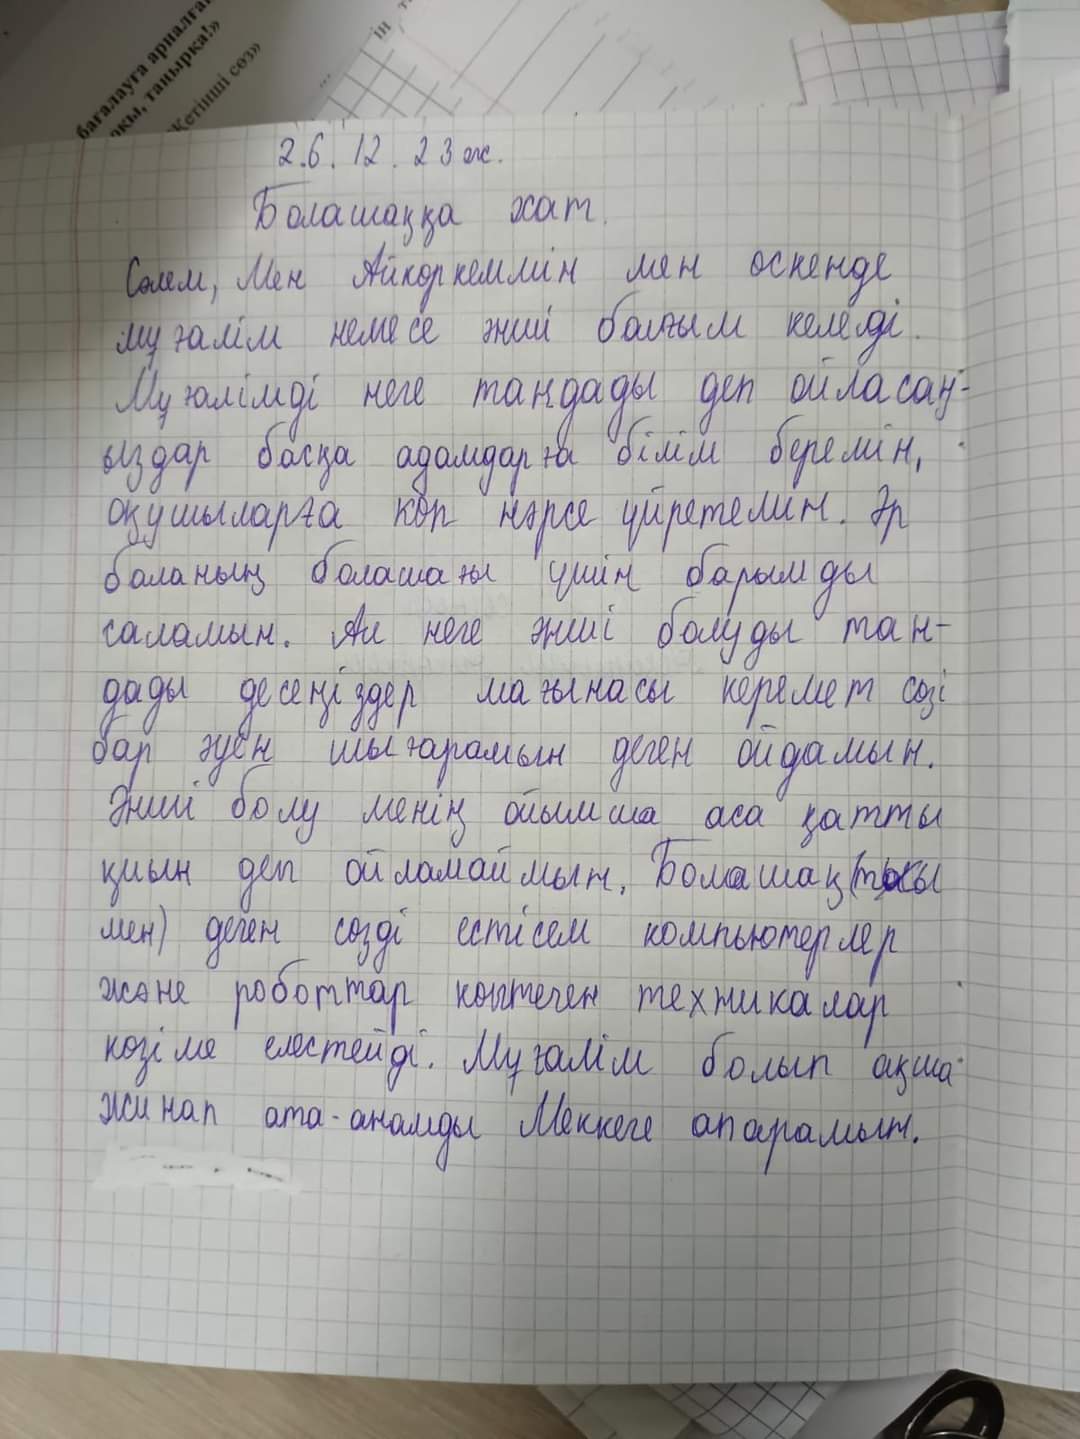 бағалауға арналған
оқы, таңырқа!»
Жетінші сөз»
ін
2.6.12.23 ж.
Болашаққа хат.
Сәлем, Мен Айкөркеммін мен өскенде
мұғалім немесе әнші болғым келеді.
Мұғалімді неге таңдады деп ойласаң-
ыздар басқа адамдарға білім беремін,
оқушыларға көп нәрсе үйретемин. Әр
баланың болашағы үшін барымды
саламын. Ал неге әнші болуды тан-
дады десеңіздер мағынасы керемет сөзі
бар әуен шығарамын деген ойдамын.
Әнші болу менің ойымша аса қатты
қиын деп ойламаймын. Болашақ(тағы
мен) деген сөзді естісем компьютерлер
және роботтар көптеген техникалар
көзіме елестейді. Мұғалім болып ақша
жинап ата-анамды Меккеге апарамын.